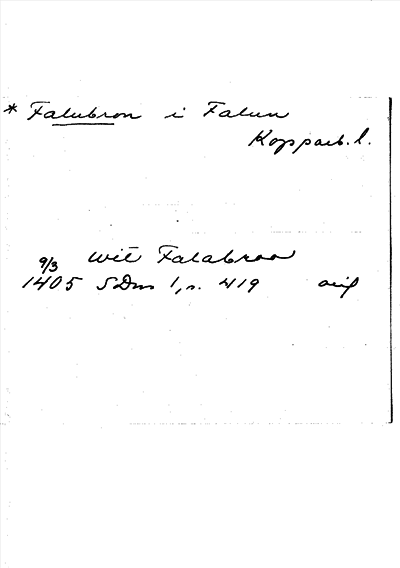 * Falubron i Falun
Kopparb. l.
wit Falabroo
9/3
1405 SDns 1, s. 419 orig